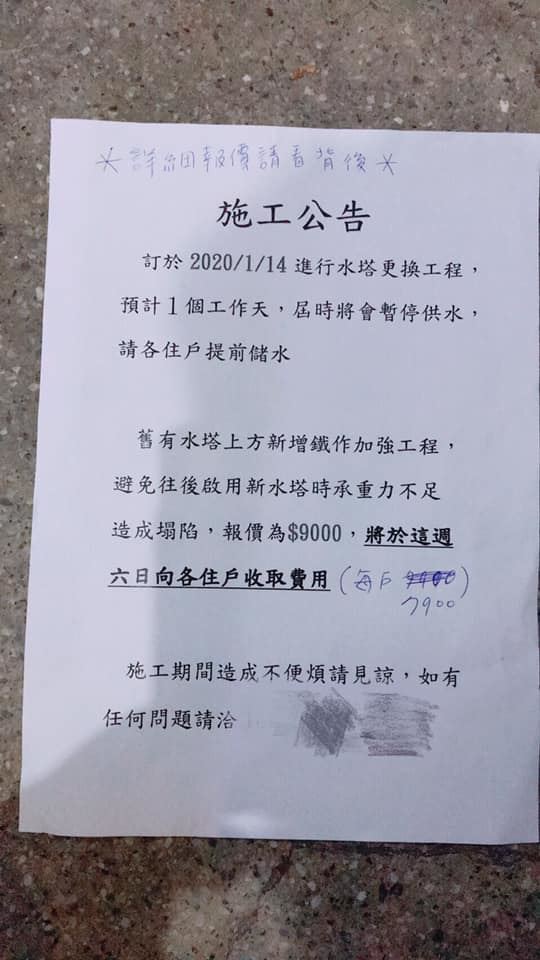 ＊詳細報價請看背後＊
施工公告
訂於 2020/1/14 進行水塔更換工程，
預計 1 個工作天，屆時將會暫停供水，
請各住戶提前儲水
舊有水塔上方新增鐵作加強工程，
避免往後啟用新水塔時承重力不足
造成塌陷，報價為$9000，將於這週
六日向各住戶收取費用（每戶
7900）
施工期間造成不便煩請見諒，如有
任何問題請洽